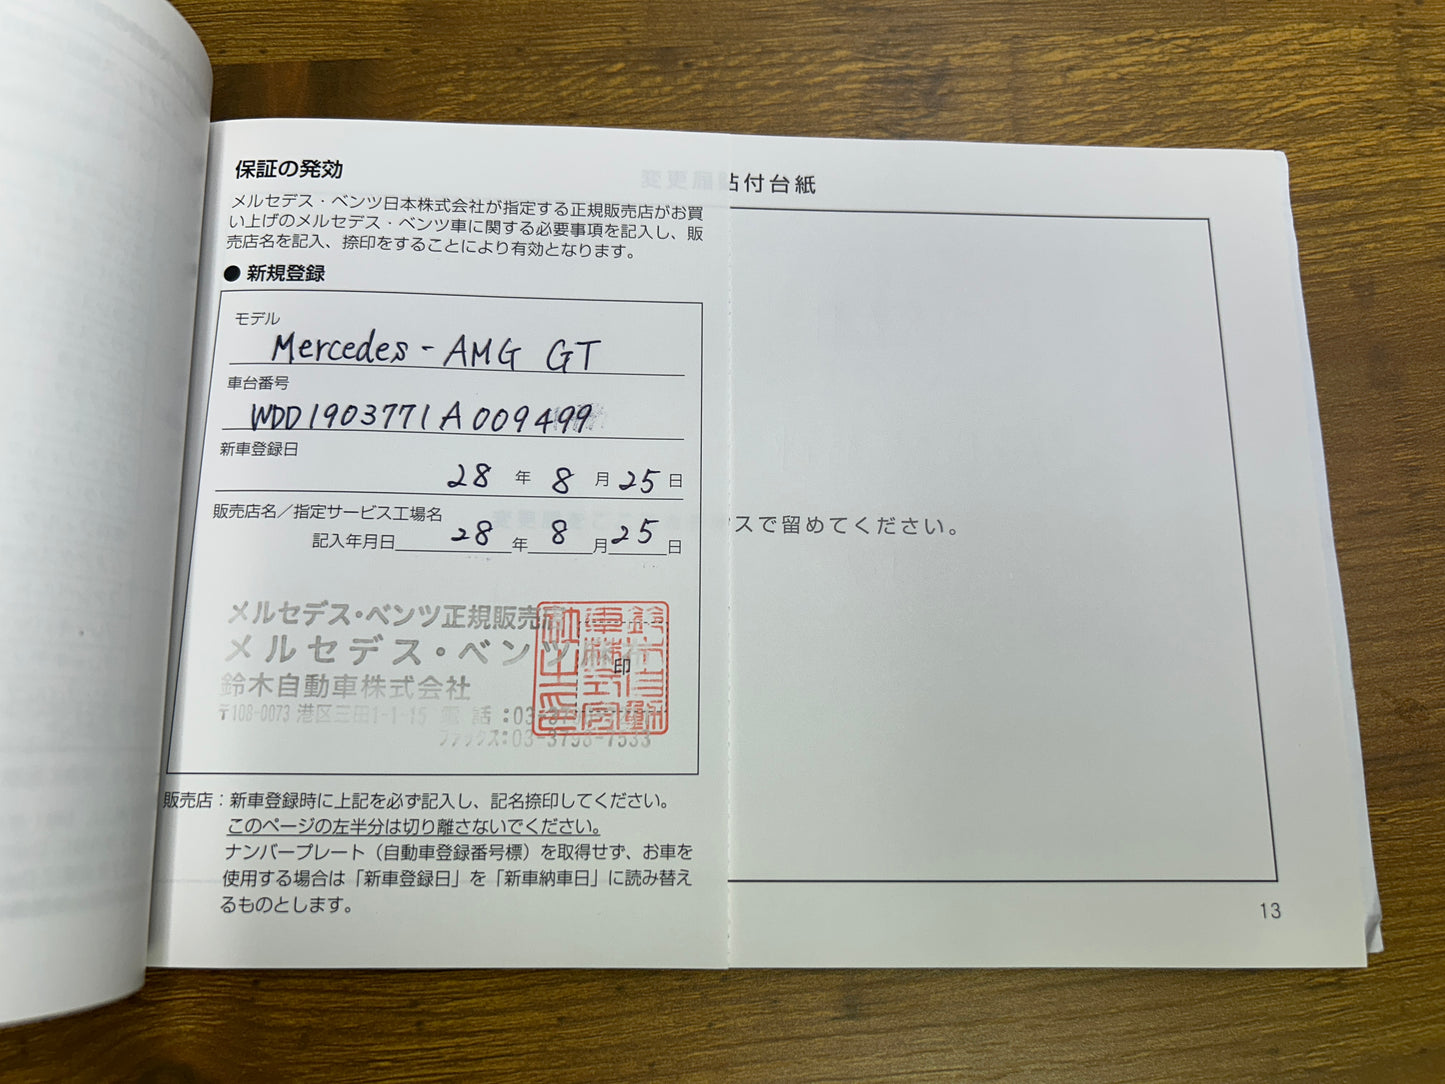 保証の発効
メルセデス・ベンツ日本株式会社が指定する正規販売店がお買
い上げのメルセデス・ベンツ車に関する必要事項を記入し、販
売店名を記入、捺印をすることにより有効となります。
● 新規登録
モデル
Mercedes-AMG GT
車台番号
WDD1903771A009499
新車登録日
28 年 8 月 25 日
販売店名／指定サービス工場名
記入年月日 28 年 8 月 25 日
メルセデス・ベンツ正規販売店
メルセデス・ベンツ
鈴木自動車株式会社
〒108-0073 港区三田1-1-15 電話:03-
ファックス:03-3798-7533
印
販売店：新車登録時に上記を必ず記入し、記名捺印してください。
このページの左半分は切り離さないでください。
ナンバープレート（自動車登録番号標）を取得せず、お車を
使用する場合は「新車登録日」を「新車納車日」に読み替え
るものとします。
付台紙
スで留めてください。
13